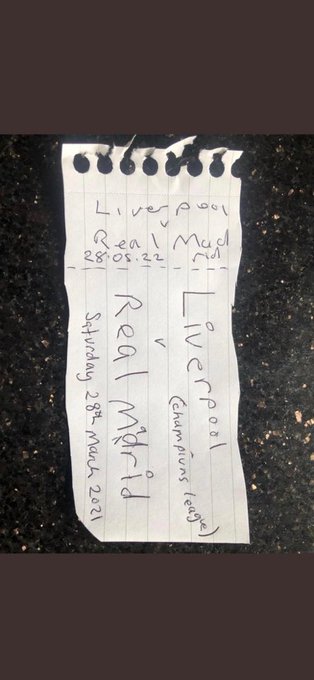 Liverpool
v
Real Mad
rid
28.05.22
Liverpool
(champiuns league)
v
Real Madrid
Saturday 28th March 2021